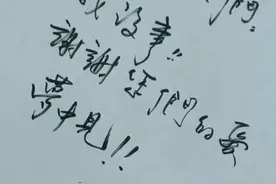 們。
我沒事!!
謝謝你們的愛
夢中見!!